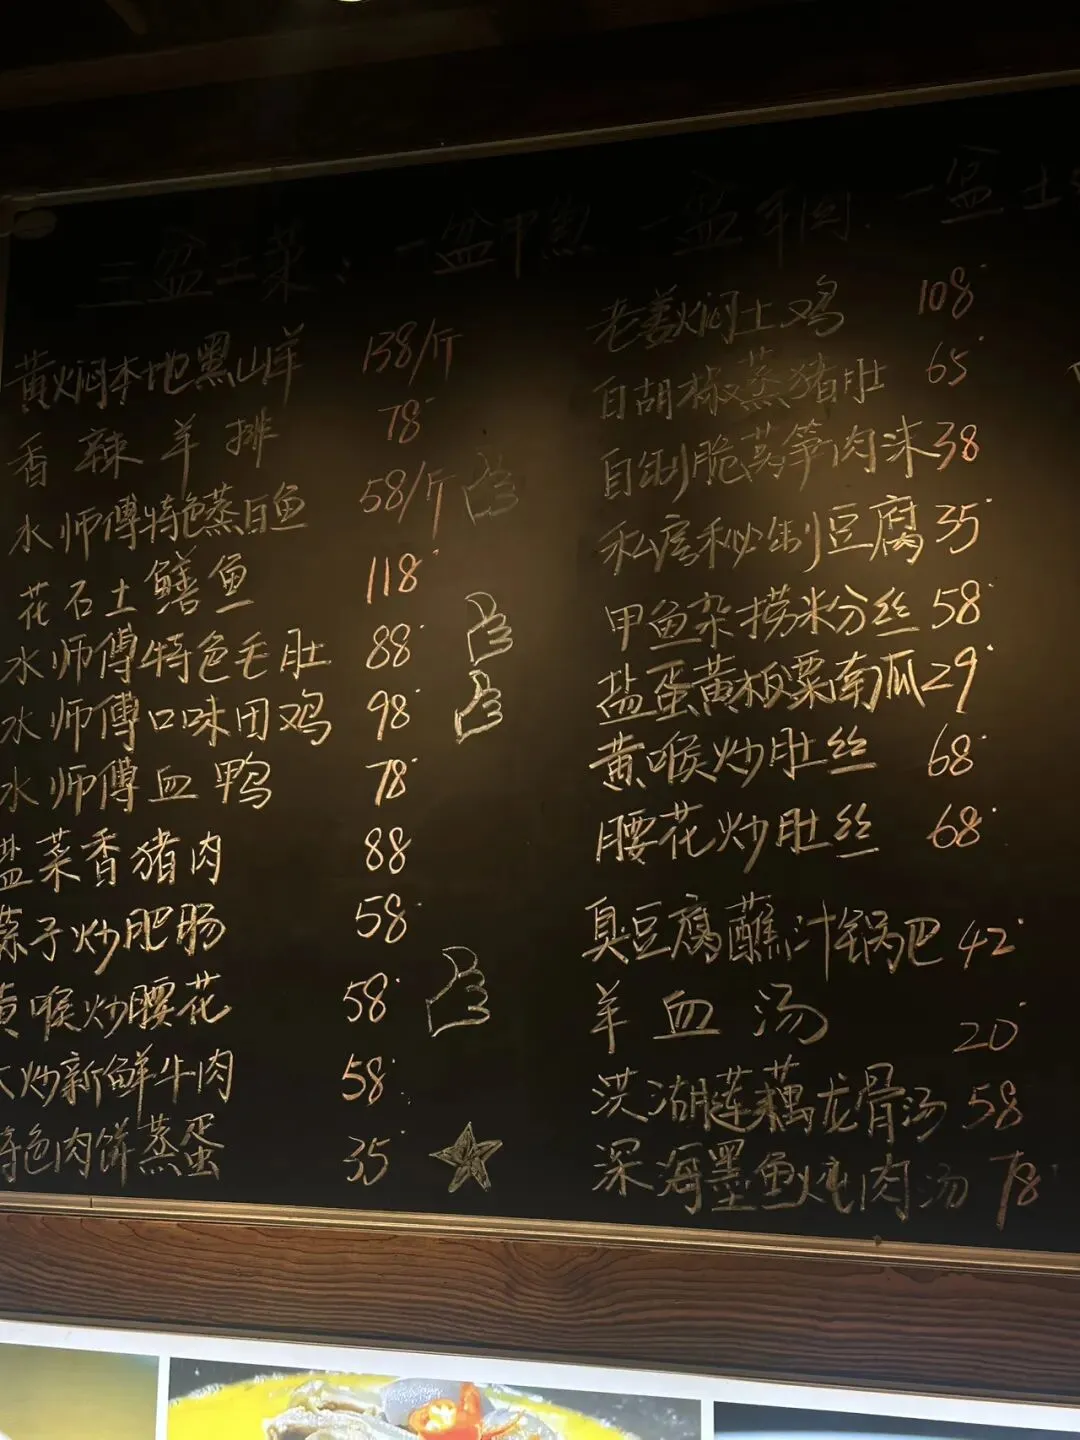 三盆土菜：一盆甲鱼 一盆羊肉 一盆土
黄焖本地黑山羊 138/斤
香辣羊排 78
水师傅特色蒸白鱼 58/斤
花石土鳝鱼 118
水师傅特色毛肚 88
水师傅口味田鸡 98
水师傅血鸭 78
盐菜香猪肉 88
蒜子炒肥肠 58
黄喉炒腰花 58
炒新鲜牛肉 58
特色肉饼蒸蛋 35
老姜焖土鸡 108
白胡椒蒸猪肚 65
自制脆莴笋肉沫 38
私房秘制豆腐 35
甲鱼杂捞米分丝 58
盐蛋黄板栗南瓜 29
黄喉炒肚丝 68
腰花炒肚丝 68
臭豆腐蘸汁锅巴 42
羊血汤 20
洪湖莲藕龙骨汤 58
深海墨鱼炖肉汤 78